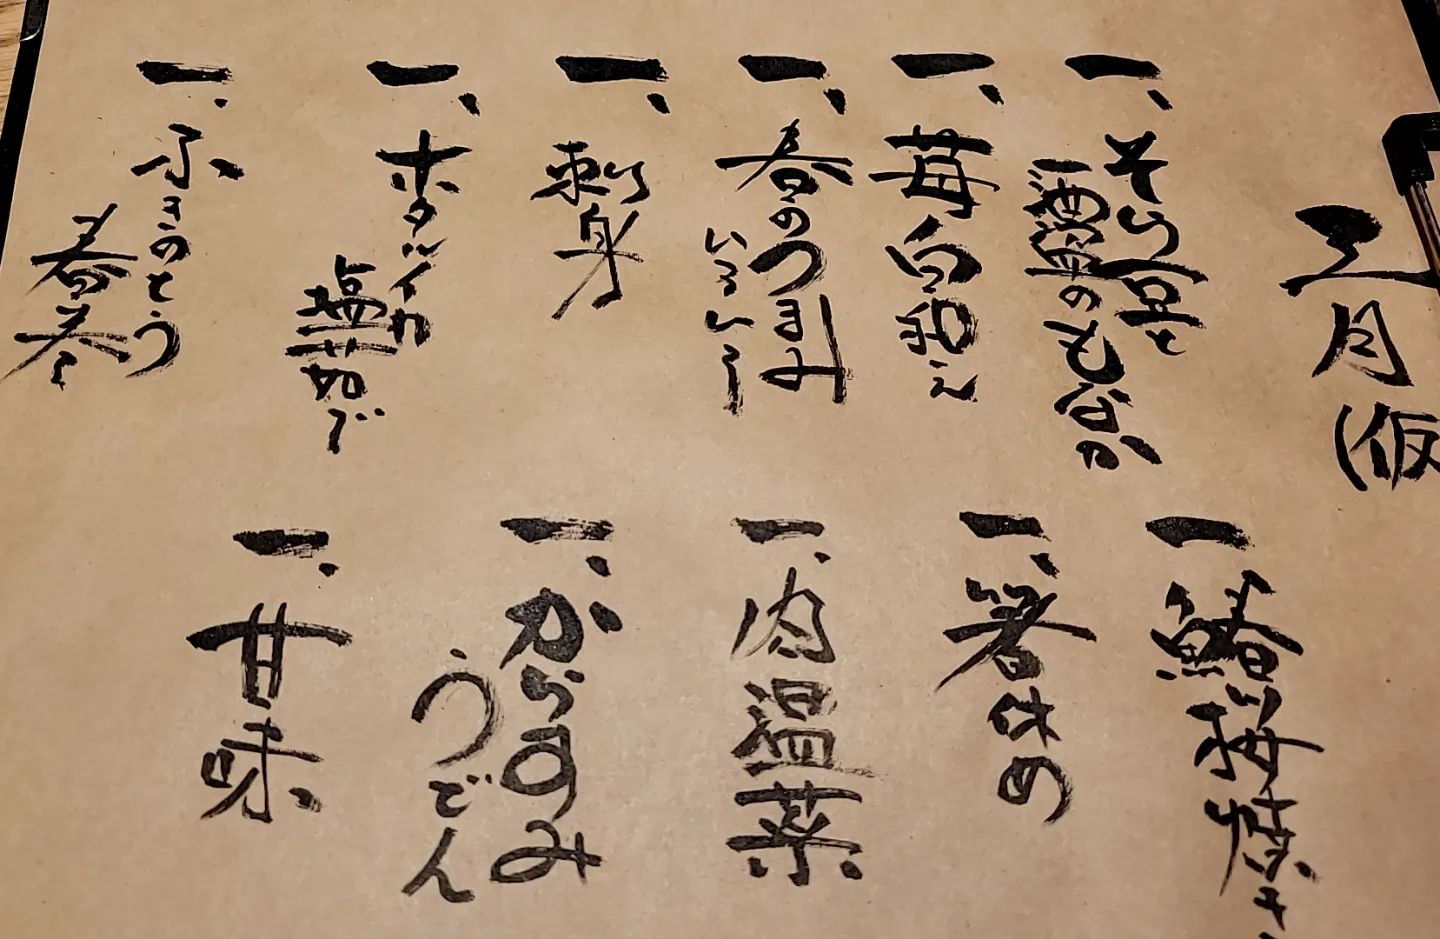 三月(仮
一、そら豆と
酒盗のもなか
一、苺白和え
一、春のつまみ
いろいろ
一、刺身
一、ホタルイカ
塩茹で
一、ふきのとう
春巻き
一 鰆梅焼き
一、箸休め
一、肉温菜
一、からすみ
うどん
一、甘味